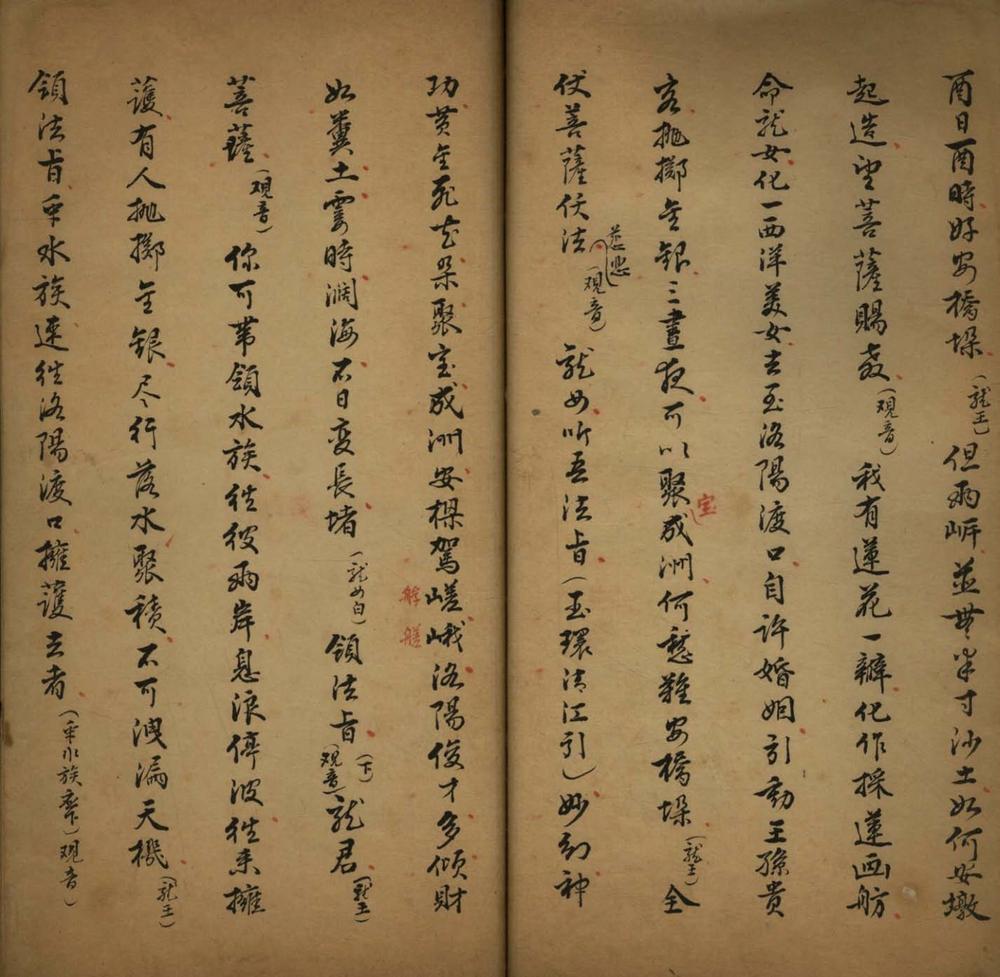 酉日酉時好安橋垛（龍王）但兩岍並無半寸沙土如何安墩
起造望菩薩賜教（观音）我有蓮花一瓣化作採蓮画舫
命龍女化一西洋美女去至洛陽渡口自許婚姻引動王孫貴
客抛擲金銀三晝夜可以聚宝成洲何愁難安橋垛（龍王）全
伏菩薩慈悲（观音）龍女听吾法旨（玉環清江引）妙幻神
功黄金死花朵聚宝成洲安樑駕嵯峨洛陽俊才多傾財
如糞土霎時涸海不日变長堵（龍女白）領法旨（下）（观音）龍君（龍王）
菩薩（观音）你可带領水族往彼兩岸息浪停波往来擁
護有人抛擲金銀尽行落水聚積不可洩漏天機（龍王）
領法旨 水族速往洛陽渡口擁護去者（水族 下）观音）